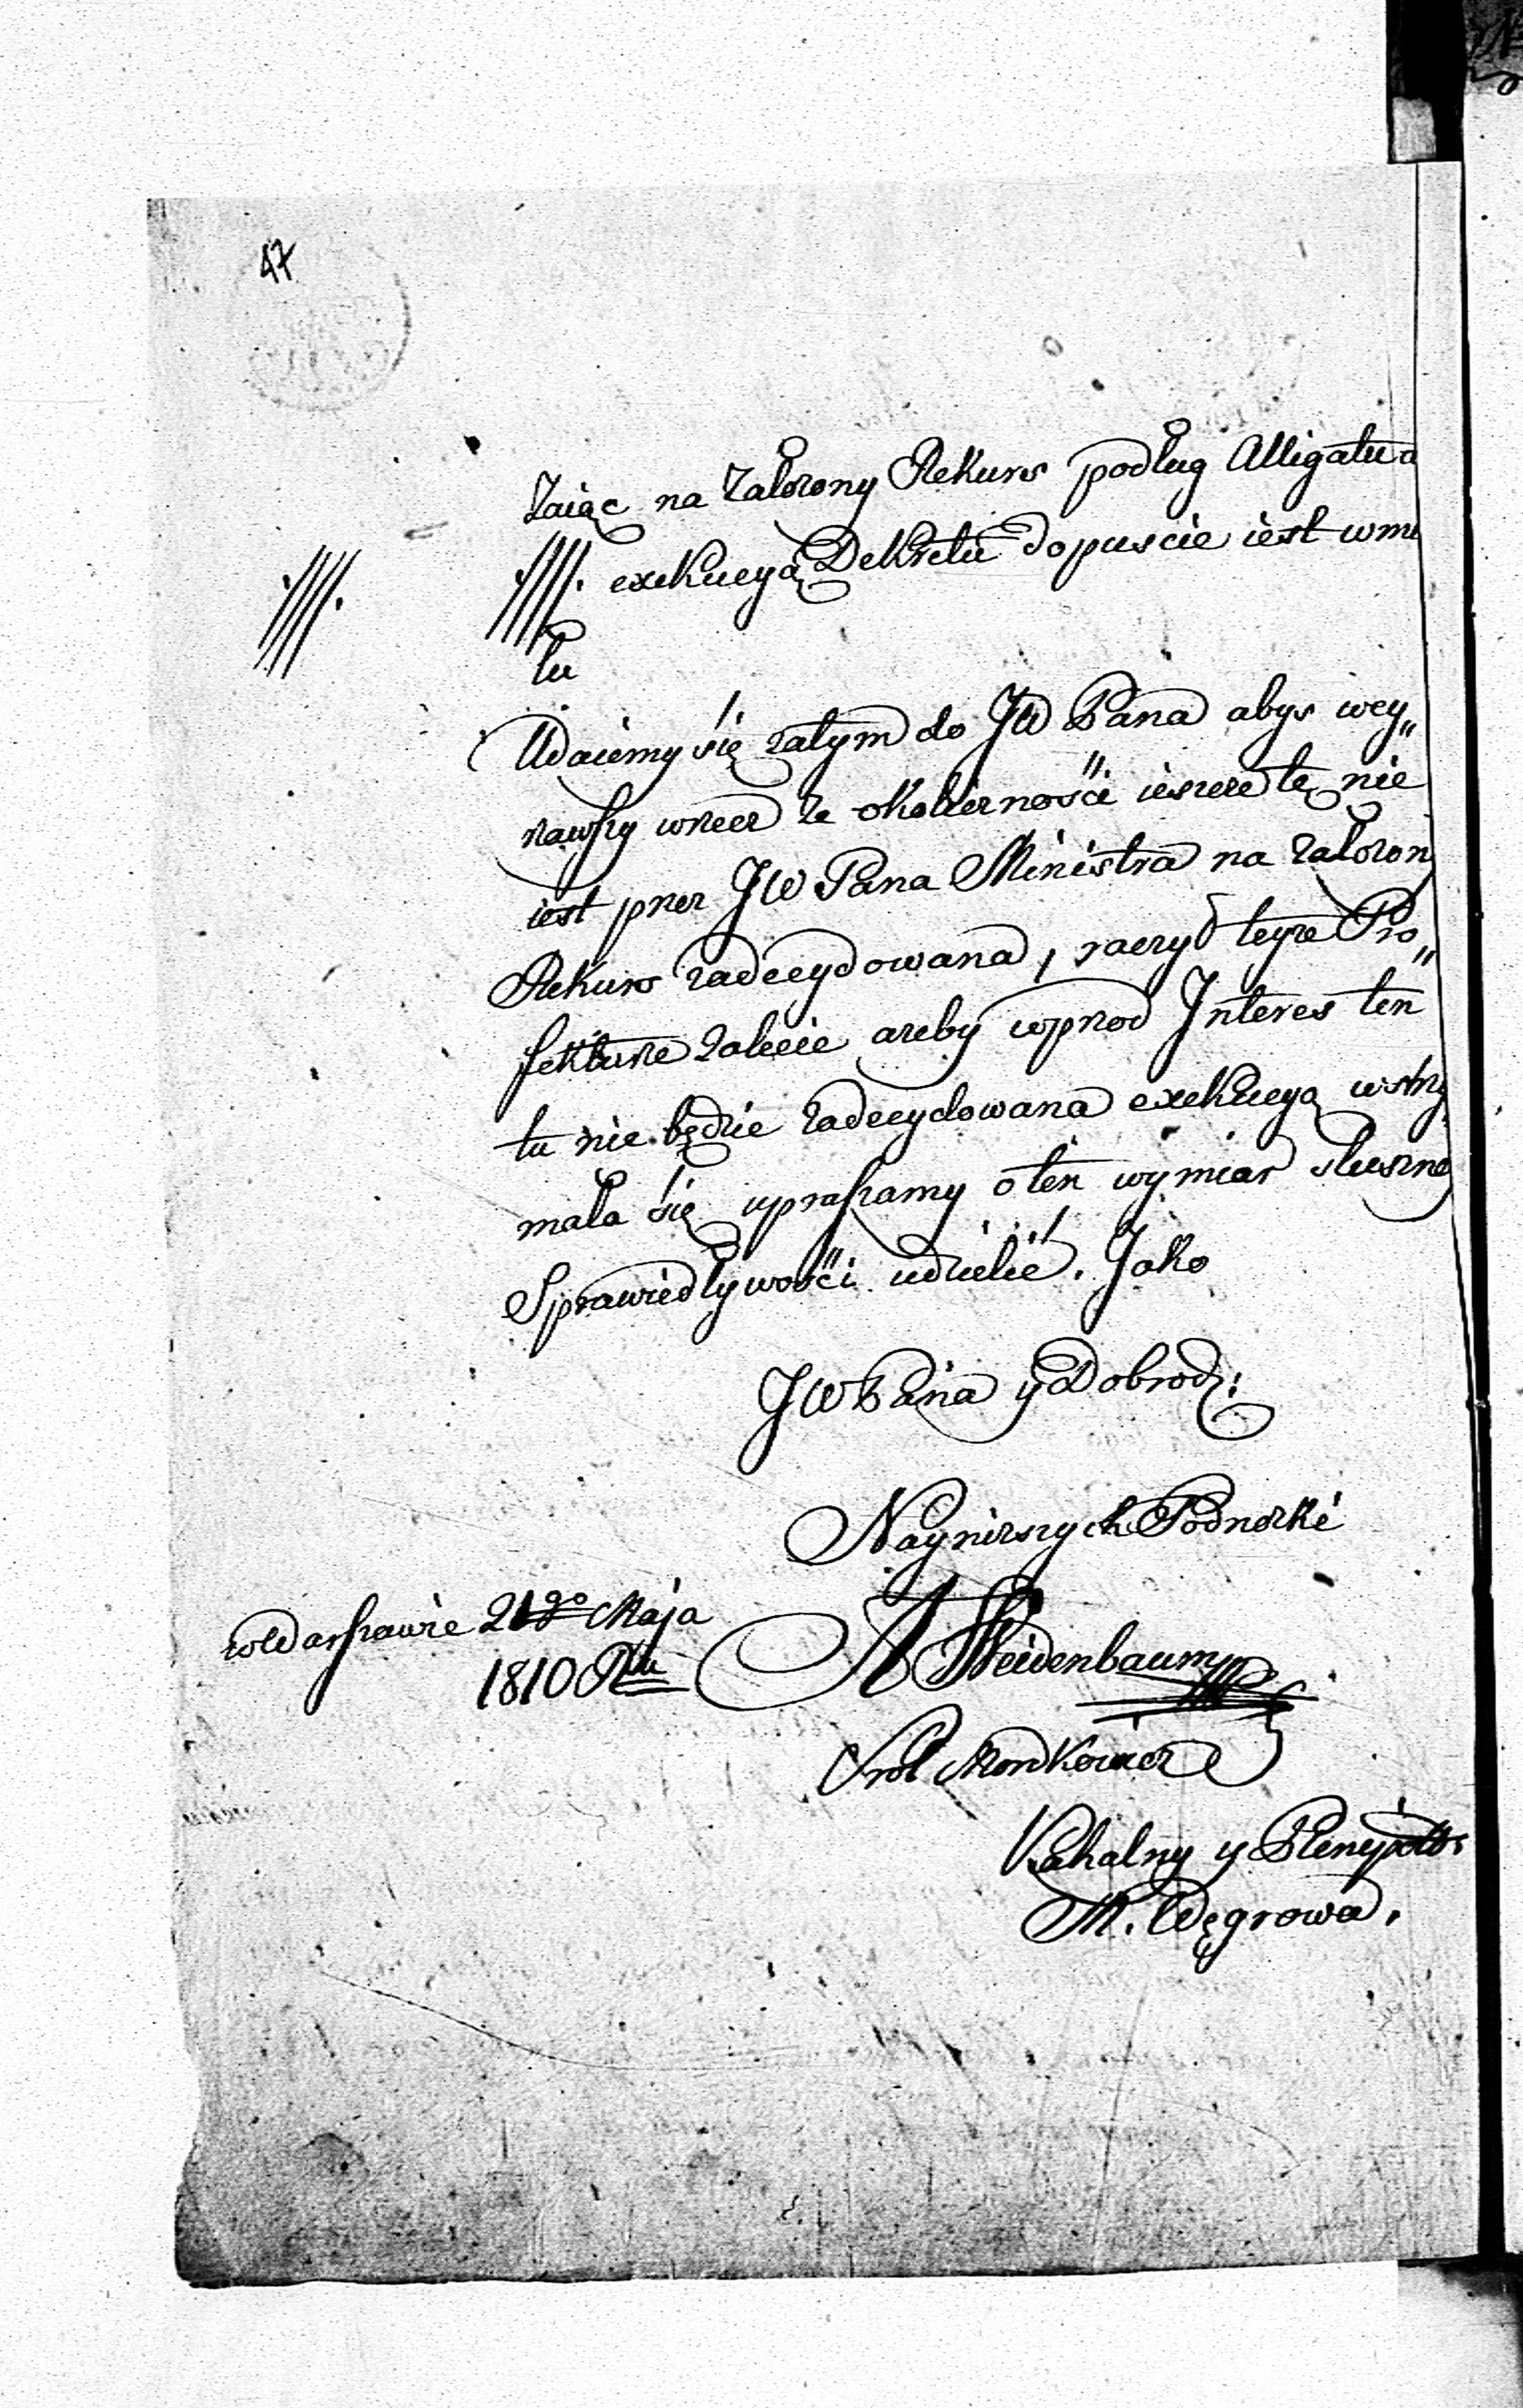 47
żaiąc na założony Rekurs podług Alligatu a
exekucyą Dekretu dopuście iest w
tu
Udaiemy się zatym do JW Pana abyś wey„
rawszy wrzecz że okoliczności ieszcze tę nie
iest przez JW Pana Ministra na założon
Rekurs zadecydowana, raczył teyże Pre„
fekturze zalecić ażeby wprzod Interes ten
tu nie będzie zadecydowana exekucyą wstrzy
mała się upraszamy o ten wymiar słuszney
Sprawiedływości udzielić. Jako
JW Pana y Dobrodz:
Nayniższych Podnożki
w Warszawie 21go Maja
1810 Ru
A Weidenbaum
Srol Morkowicz
Kahalny y Plenipot:
M. Węgrowa.